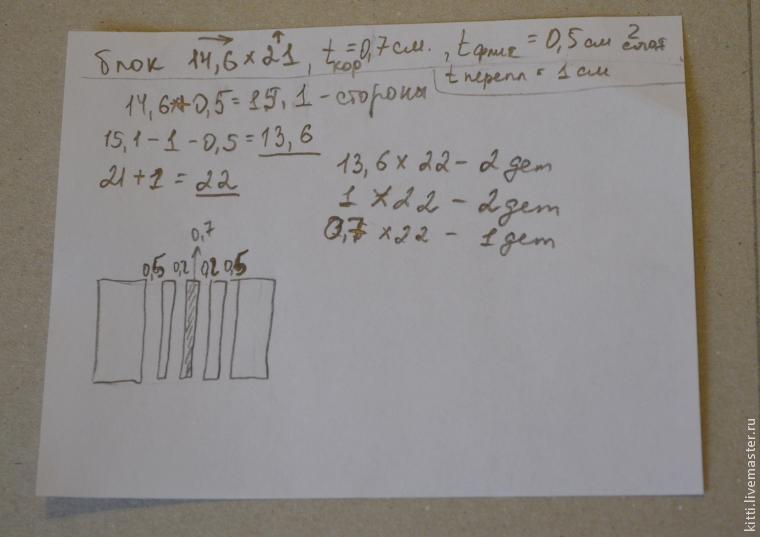 блок 14,6 × 21, t кор = 0,7 см., t флис = 0,5 см 2 слоя
t перепл = 1 см
14,6 + 0,5 = 15,1 - стороны
15,1 - 1 - 0,5 = 13,6
21 + 1 = 22
13,6 × 22 - 2 дет
1 × 22 - 2 дет
0,7 × 22 - 1 дет
0,7
0,5 0,2 0,2 0,5
kitti.livemaster.ru